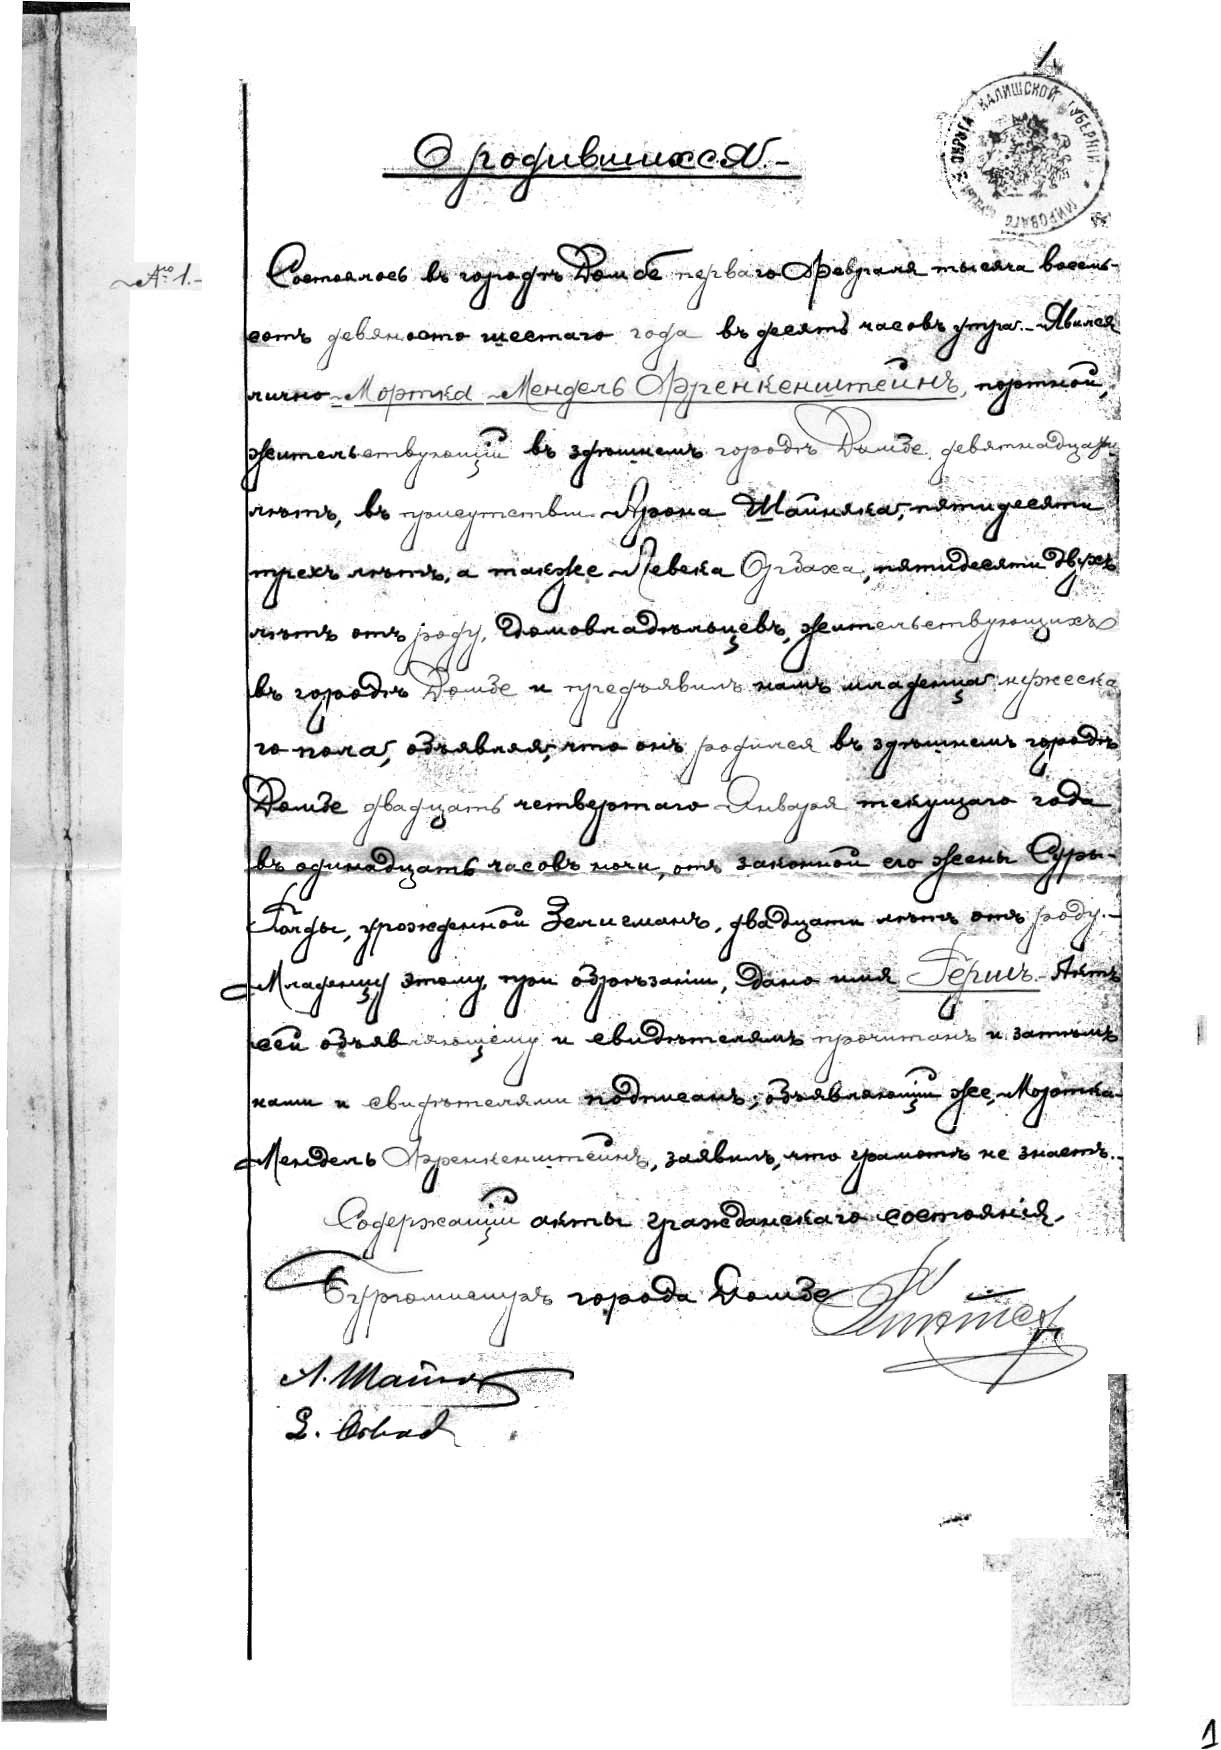 1.
ОКРУГА КАЛИШСКОЙ ГУБЕРНІИ * МИРОВАГО
О родившихся.-
№ 1.-
Состоялось въ городѣ Домбе перваго Февраля тысяча восемь-
сотъ девяносто шестаго года въ десять часовъ утра.- Явился
лично Мортка Мендель Френкенштейнъ, портной,
жительствующій въ здѣшнемъ городѣ Домбе, девятнадцати
лѣтъ, въ присутствіи Арона Шайняка, пятидесяти
трехъ лѣтъ, а также Левека Орбаха, пятидесяти двухъ
лѣтъ отъ роду, домовладѣльцевъ, жительствующихъ
въ городѣ Домбе и предъявилъ намъ младенца мужеска
го пола, объявляя, что онъ родился въ здѣшнемъ городѣ
Домбе двадцать четвертаго Января текущаго года
въ одинадцать часовъ ночи, отъ законной его жены Суры-
Голды, урожденной Зелисманъ, двадцати лѣтъ отъ роду.-
Младенцу этому, при обрѣзаніи, дано имя Гершъ.- Актъ
сей объявляющему и свидѣтелямъ прочитанъ и затѣмъ
нами и свидѣтелями подписанъ; объявляющій же, Мортка
Мендель Френкенштейнъ, заявилъ, что грамотѣ не знаетъ.-
Содержащій акты гражданскаго состоянія,
Бургомистръ города Домбе
А. Шайняк
1